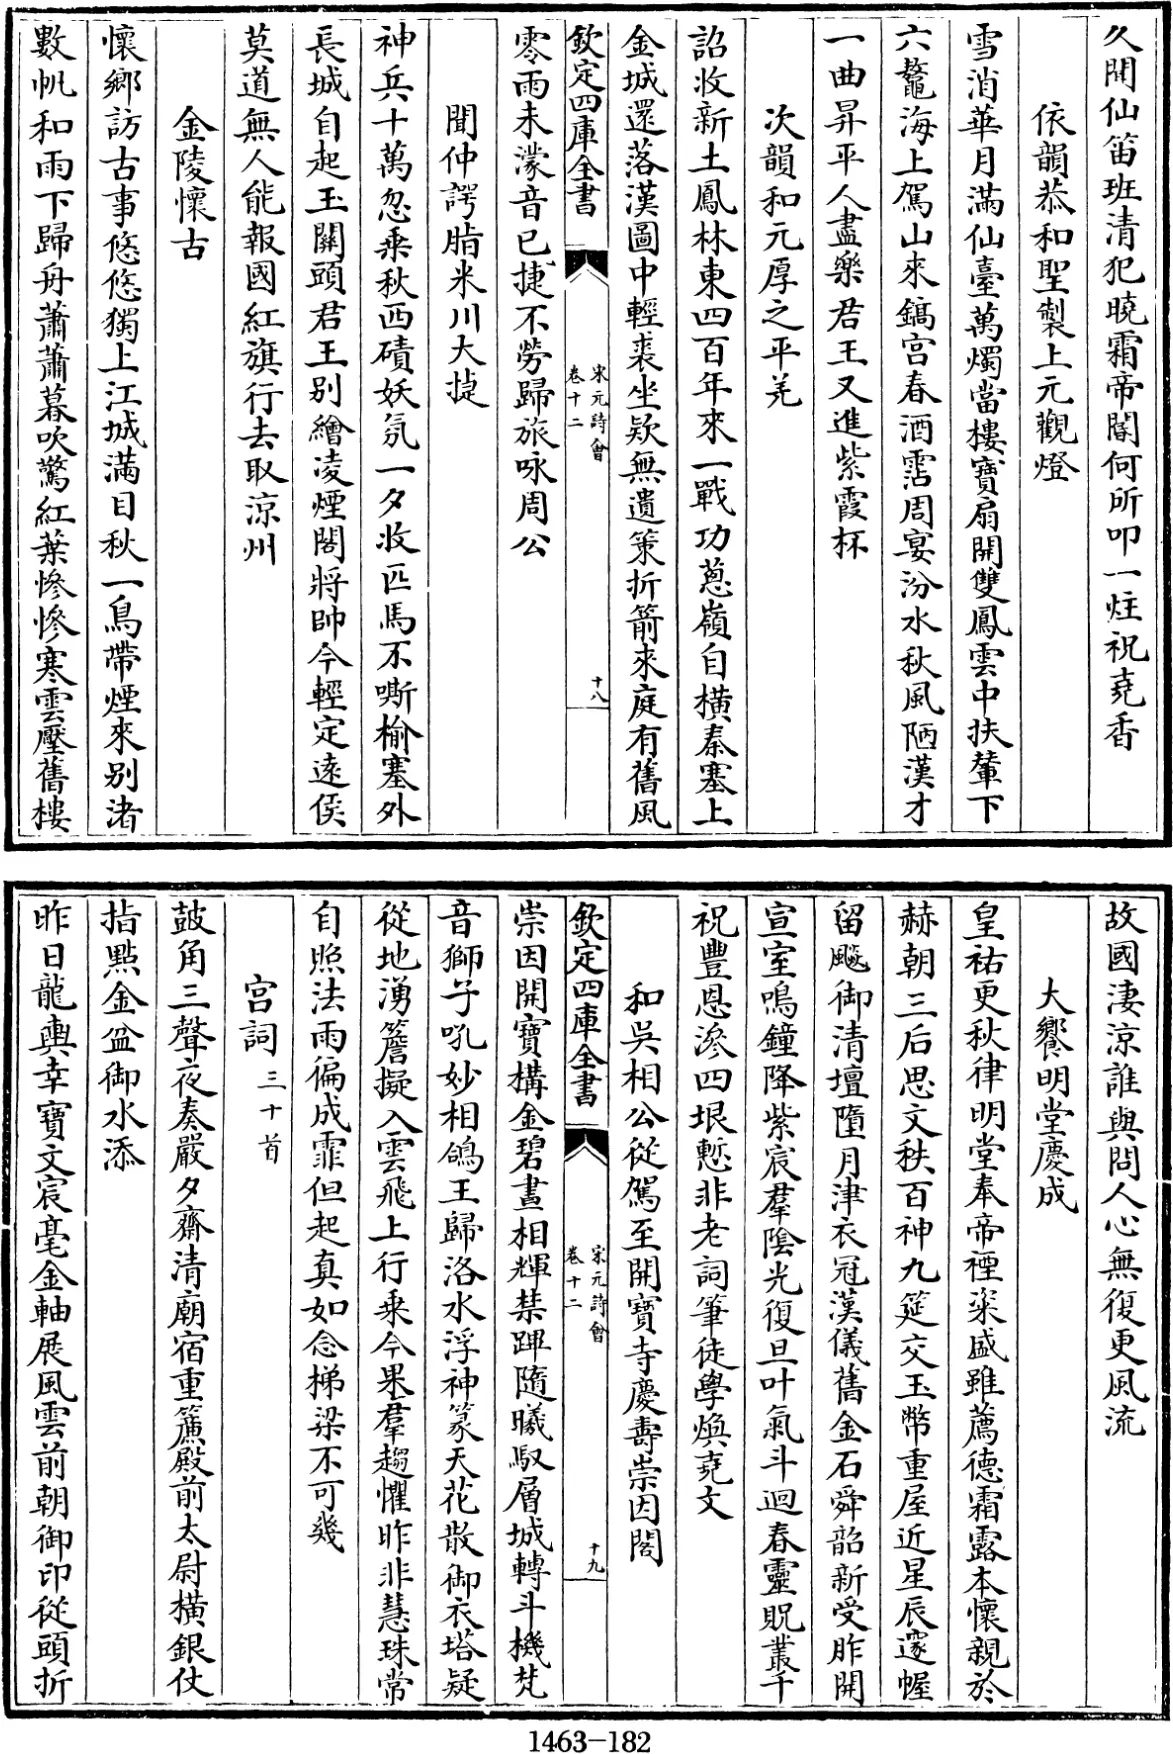 久閒仙笛班清犯曉霜帝閽何所叩一炷祝堯香
依韻恭和聖製上元觀燈
雪消華月滿仙臺萬燭當樓寶扇開雙鳳雲中扶輦下
六鼇海上駕山來鎬宮春酒霑周宴汾水秋風陋漢才
一曲昇平人盡樂君王又進紫霞杯
次韻和元厚之平羌
詔收新土鳳林東四百年來一戰功蔥嶺自橫秦塞上
金城還落漢圖中輕裘坐歎無遺策折箭來庭有舊風
欽定四庫全書
宋元詩會
卷十二
十八
零雨未濛音已捷不勞歸旅咏周公
聞仲諤脂米川大㨗
神兵十萬忽乗秋西磧妖氛一夕收匹馬不嘶榆塞外
長城自起玉關頭君王别繪凌煙閣將帥今輕定遠侯
莫道無人能報國紅旗行去取涼州
金陵懷古
懷鄉訪古事悠悠獨上江城滿目秋一鳥帶煙來别渚
數帆和雨下歸舟蕭蕭暮吹驚紅葉慘慘寒雲壓舊樓
故國淒涼誰與問人心無復更風流
大饗明堂慶成
皇祐更秋律明堂奉帝禋粢盛雖薦德霜露本懷親於
赫朝三后思文秩百神九筵交玉幣重屋近星辰邃幄
留飈御清壇墮月津衣冠漢儀舊金石舜韶新受胙開
宣室鳴鐘降紫宸羣陰光復旦叶氣斗迴春靈貺叢千
祝豐恩滲四垠慙非老詞筆徒學煥堯文
和吳相公從駕至開寶寺慶壽崇因閣
欽定四庫全書
宋元詩會
卷十二
十九
崇因開寶構金碧晝相輝禁蹕隨曦馭層城轉斗機梵
音獅子吼妙相鴿王歸洛水浮神篆天花散御衣塔疑
從地湧簷擬入雲飛上行乗今果羣趨懼昨非慧珠常
自照法雨徧成霏但起真如念梯梁不可㡬
宫詞三十首
鼓角三聲夜奏嚴夕齋清廟宿重簾殿前太尉橫銀仗
指點金盆御水添
昨日龍輿幸寶文宸毫金軸展風雲前朝御印從頭折
1463-182